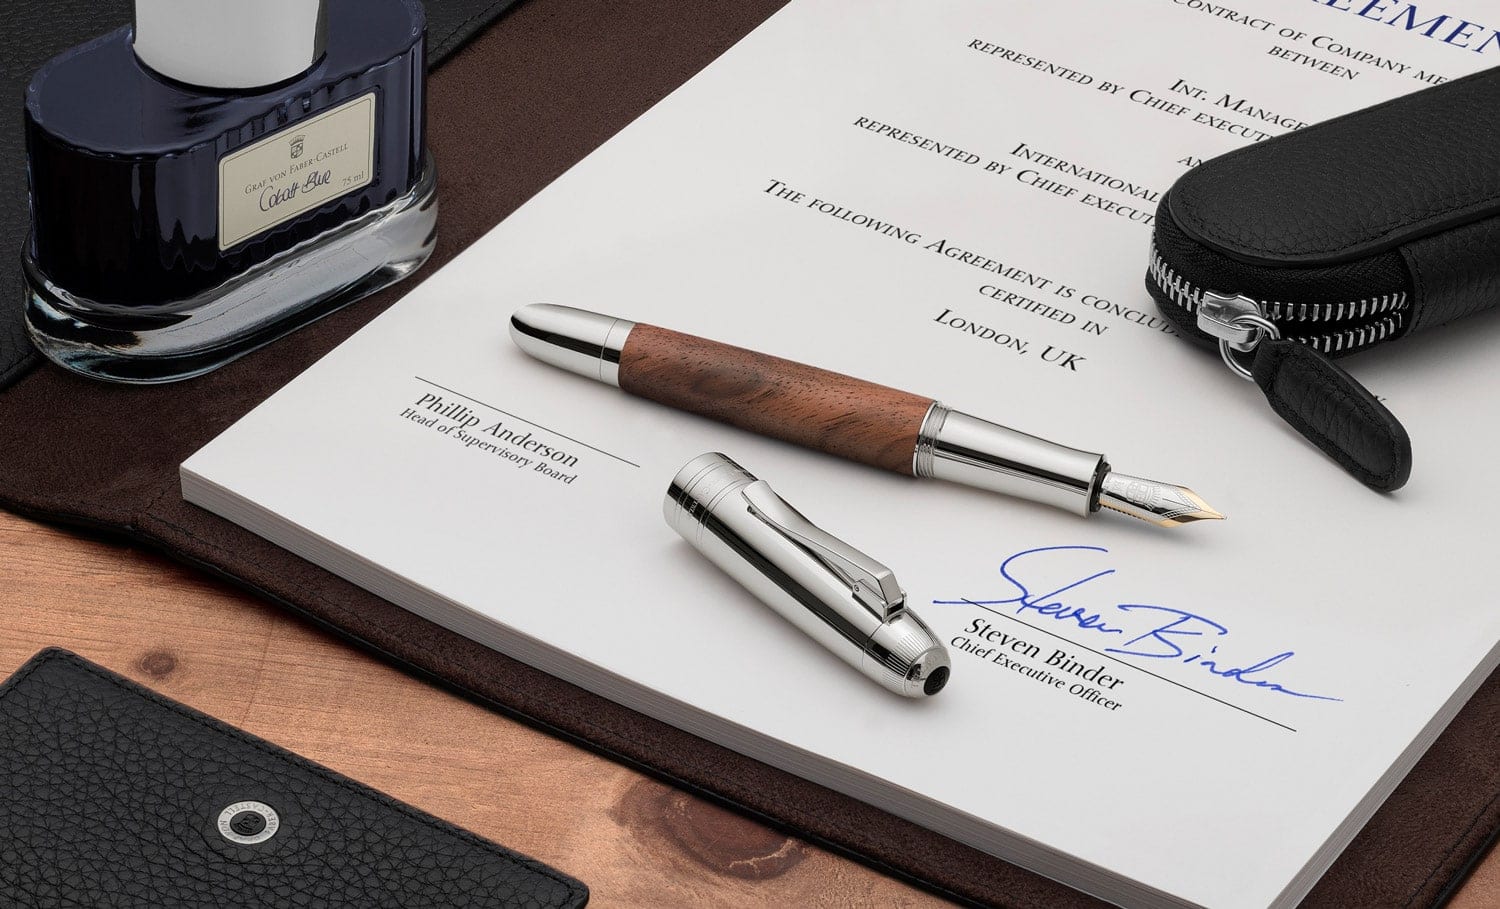 GRAF VON FABER-CASTELL
Cobalt Blue
75 ml
CONTRACT OF COMPANY
BETWEEN
INT. MANAGE
REPRESENTED BY CHIEF
INTERNATIONAL
REPRESENTED BY CHIEF
THE FOLLOWING AGREEMENT IS
CERTIFIED IN
LONDON, UK
Phillip Anderson
Head of Supervisory Board
Steven Binder
Steven Binder
Chief Executive Officer